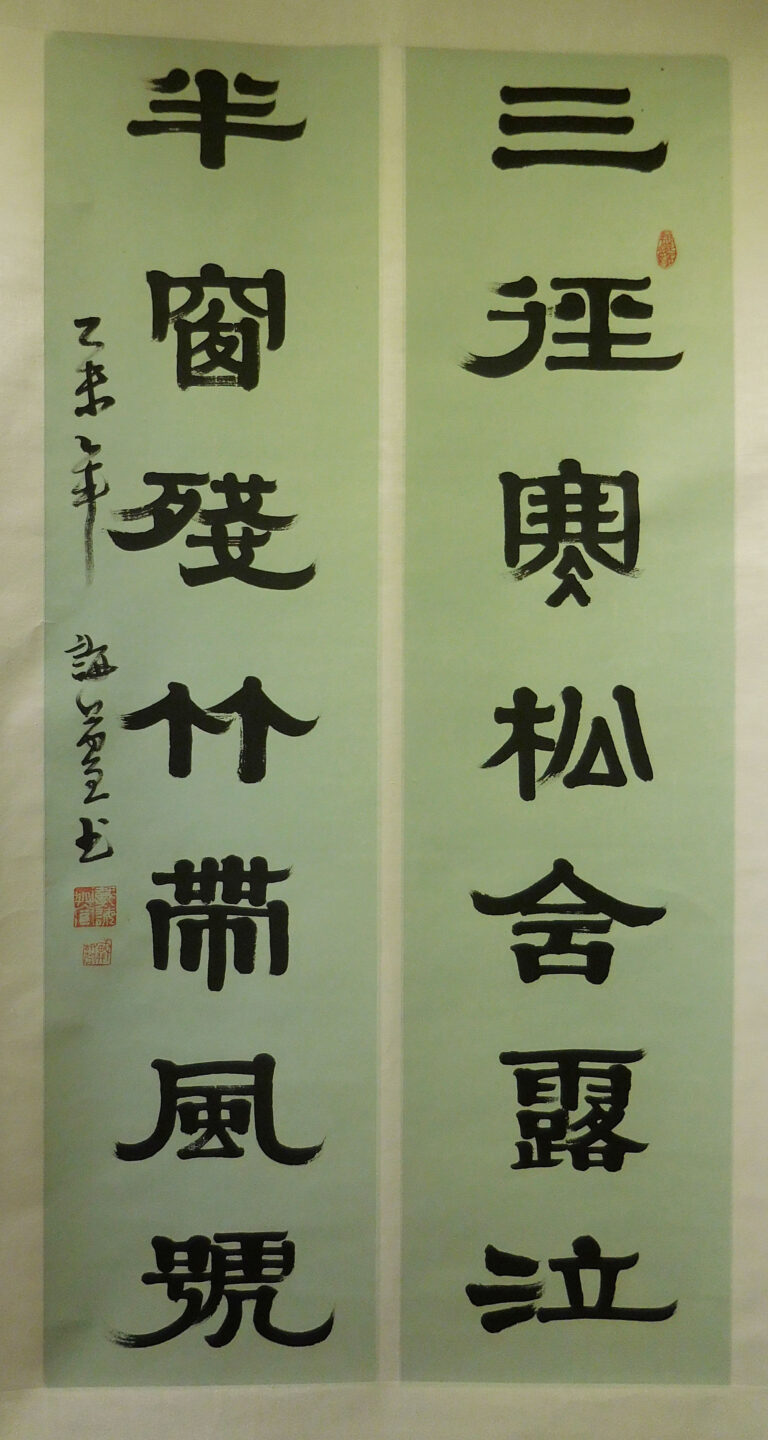 三徑寒松含露泣
半窗殘竹帶風號
乙未年 謙篁书